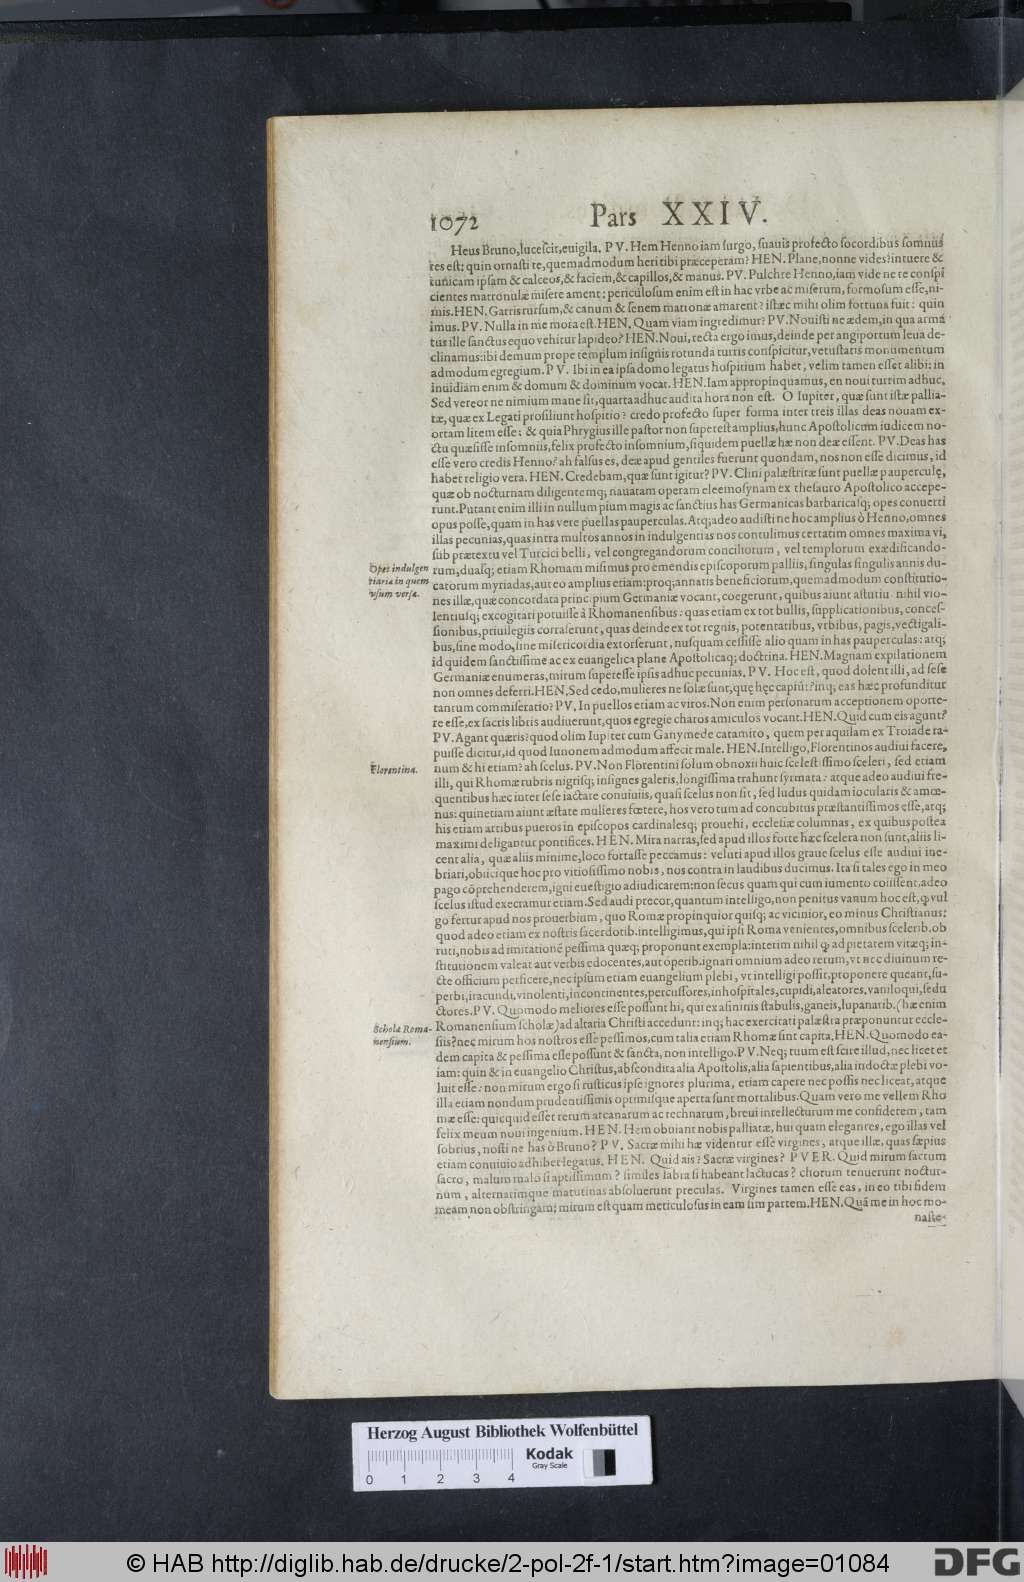 1072 Pars XXIV.
Heus Bruno, lucescit, euigila. PV. Hem Henno iam surgo, suauis profecto socordibus somnus
res est: quin ornasti te, quemadmodum heri tibi præceperam? HEN. Plane, nonne vides? intuere &
tunicam ipsam & calceos, & faciem, & capillos, & manus. PV. Pulchre Henno, iam vide ne te conspi
cientes matronulæ misere ament: periculosum enim est in hac vrbe ac miserum, formosum esse, ni-
mis. HEN. Garris rursum, & canum & senem matronæ amarent? istæc mihi olim fortuna fuit: quin
imus. PV. Nulla in me mora est. HEN. Quam viam ingredimur? PV. Nouisti ne ædem, in qua arma
tus ille sanctus equo vehitur lapideo? HEN. Noui, recta ergo imus, deinde per angiportum leua de-
clinamus: ibi demum prope templum insignis rotunda turris conspicitur, vetustatis monumentum
admodum egregium. PV. Ibi in ea ipsa domo legatus hospitium habet, velim tamen esset alibi: in
inuidiam enim & domum & dominum vocat. HEN. Iam appropinquamus, en noui turrim adhuc.
Sed vereor ne nimium mane sit, quarta adhuc audita hora non est. O Iupiter, quæ sunt istæ pallia-
tæ, quæ ex Legati prosiliunt hospitio? credo profecto super forma inter treis illas deas nouam ex-
ortam litem esse: & quia Phrygius ille pastor non superest amplius, hunc Apostolicum iudicem no-
ctu quæsisse insomniis, felix profecto insomnium, siquidem puellæ hæ non deæ essent. PV. Deas has
esse vero credis Henno? ah falsus es, deæ apud gentiles fuerunt quondam, nos non esse dicimus, id
habet religio vera. HEN. Credebam, quæ sunt igitur? PV. Clini palæstritæ sunt puellæ pauperculę,
quæ ob nocturnam diligentemq; nauatam operam eleemosynam ex thesauro Apostolico accepe-
runt. Putant enim illi in nullum pium magis ac sanctius has Germanicas barbaricasq; opes conuerti
opus posse, quam in has vere puellas pauperculas. Atq; adeo audisti ne hoc amplius ò Henno, omnes
illas pecunias, quas intra multos annos in indulgentias nos contulimus certatim omnes maxima vi,
sub prætextu vel Turcici belli, vel congregandorum conciliorum, vel templorum exædificando-
Opes indulgen
tiaria in quem
vsum versa.
rum, duasq; etiam Rhomam misimus pro emendis episcoporum palliis, singulas singulis annis du-
catorum myriadas, aut eo amplius etiam: proq; annatis beneficiorum, quemadmodum constitutio-
nes illæ, quæ concordata principium Germaniæ vocant, coegerunt, quibus aiunt astutiu nihil vio-
lentiusq; excogitari potuisse à Rhomanensibus: quas etiam ex tot bullis, supplicationibus, conces-
sionibus, priuilegiis corraserunt, quas deinde ex tot regnis, potentatibus, vrbibus, pagis, vectigali-
bus, sine modo, sine misericordia extorserunt, nusquam cessisse alio quam in has pauperculas: atq;
id quidem sanctissime ac ex euangelica plane Apostolicaq; doctrina. HEN. Magnam expilationem
Germaniæ enumeras, mirum superesse ipsis adhuc pecunias. PV. Hoc est, quod dolent illi, ad sese
non omnes deferri. HEN. Sed cedo, mulieres ne solæ sunt, quę hęc capiūt? inq; eas hæc profunditur
tantum commiseratio? PV. In puellos etiam ac viros. Non enim personarum acceptionem oporte-
re esse, ex sacris libris audiuerunt, quos egregie charos amiculos vocant. HEN. Quid cum eis agunt?
PV. Agant quæris? quod olim Iupiter cum Ganymede catamito, quem per aquilam ex Troiade ra-
puisse dicitur, id quod Iunonem admodum affecit male. HEN. Intelligo, Florentinos audiui facere,
Florentina.
num & hi etiam? ah scelus. PV. Non Florentini solum obnoxii huic scelestissimo sceleri, sed etiam
illi, qui Rhomæ rubris nigrisq; insignes galeris, longissima trahunt syrmata: atque adeo audiui fre-
quentibus hæc inter sese iactare conuiuiis, quasi scelus non sit, sed ludus quidam iocularis & amœ-
nus: quinetiam aiunt æstate mulieres fœtere, hos vero tum ad concubitus præstantissimos esse, atq;
his etiam artibus pueros in episcopos cardinalesq; prouehi, ecclesiæ columnas, ex quibus postea
maximi deligantur pontifices. HEN. Mira narras, sed apud illos forte hæc scelera non sunt, aliis li-
cent alia, quæ aliis minime, loco fortasse peccamus: veluti apud illos graue scelus esse audiui ine-
briari, obiicique hoc pro vitiosissimo nobis, nos contra in laudibus ducimus. Ita si tales ego in meo
pago cōprehenderem, igni euestigio adiudicarem: non secus quam qui cum iumento coiissent, adeo
scelus istud execramur etiam. Sed audi precor, quantum intelligo, non penitus vanum hoc est, ꝙ vul
go fertur apud nos prouerbium, quo Romæ propinquior quisq; ac vicinior, eo minus Christianus:
quod adeo etiam ex nostris sacerdotib. intelligimus, qui ipsi Roma venientes, omnibus scelerib. ob
ruti, nobis ad imitationē pessima quæq; proponunt exempla: interim nihil ꝙ ad pietatem vitæq; in-
stitutionem valeat aut verbis edocentes, aut operib. ignari omnium adeo rerum, vt nec diuinum re-
cte officium perficere, nec ipsum etiam euangelium plebi, vt intelligi possit, proponere queant, su-
perbi, iracundi, vinolenti, incontinentes, percussores, inhospitales, cupidi, aleatores, vaniloqui, sedu
ctores. PV. Quomodo meliores esse possunt hi, qui ex asininis stabulis, ganeis, lupanarib. (hæ enim
Schola Roma-
nensium.
Romanensium scholæ) ad altaria Christi accedunt: inq; hac exercitati palæstra præponuntur eccle-
siis? nec mirum hos nostros esse pessimos, cum talia etiam Rhomæ sint capita. HEN. Quomodo ea-
dem capita & pessima esse possunt & sancta, non intelligo. PV. Neq; tuum est scire illud, nec licet et
iam: quin & in euangelio Christus, abscondita alia Apostolis, alia sapientibus, alia indoctæ plebi vo-
luit esse: non mirum ergo si rusticus ipse ignores plurima, etiam capere nec possis nec liceat, atque
illa etiam nondum prudentissimis optimisque aperta sunt mortalibus. Quam vero me vellem Rho
mæ esse: quicquid esset rerum arcanarum ac technarum, breui intellecturum me confiderem, tam
felix meum noui ingenium. HEN. Hem obuiant nobis palliatæ, hui quam elegantes, ego illas vel
sobrius, nosti ne has ò Bruno? PV. Sacræ mihi hæ videntur esse virgines, atque illæ, quas sæpius
etiam conuiuio adhibet legatus. HEN. Quid ais? Sacræ virgines? PVER. Quid mirum factum
sacro, malum malo si aptissimum? similes labra si habeant lactucas? chorum tenuerunt noctur-
num, alternatimque matutinas absoluerunt preculas. Virgines tamen esse eas, in eo tibi fidem
meam non obstringam: mirum est quam meticulosus in eam sim partem. HEN. Quā me in hoc mo-
naste-
Herzog August Bibliothek Wolfenbüttel
Kodak
Gray Scale
0 1 2 3 4
© HAB http://diglib.hab.de/drucke/2-pol-2f-1/start.htm?image=01084
DFG